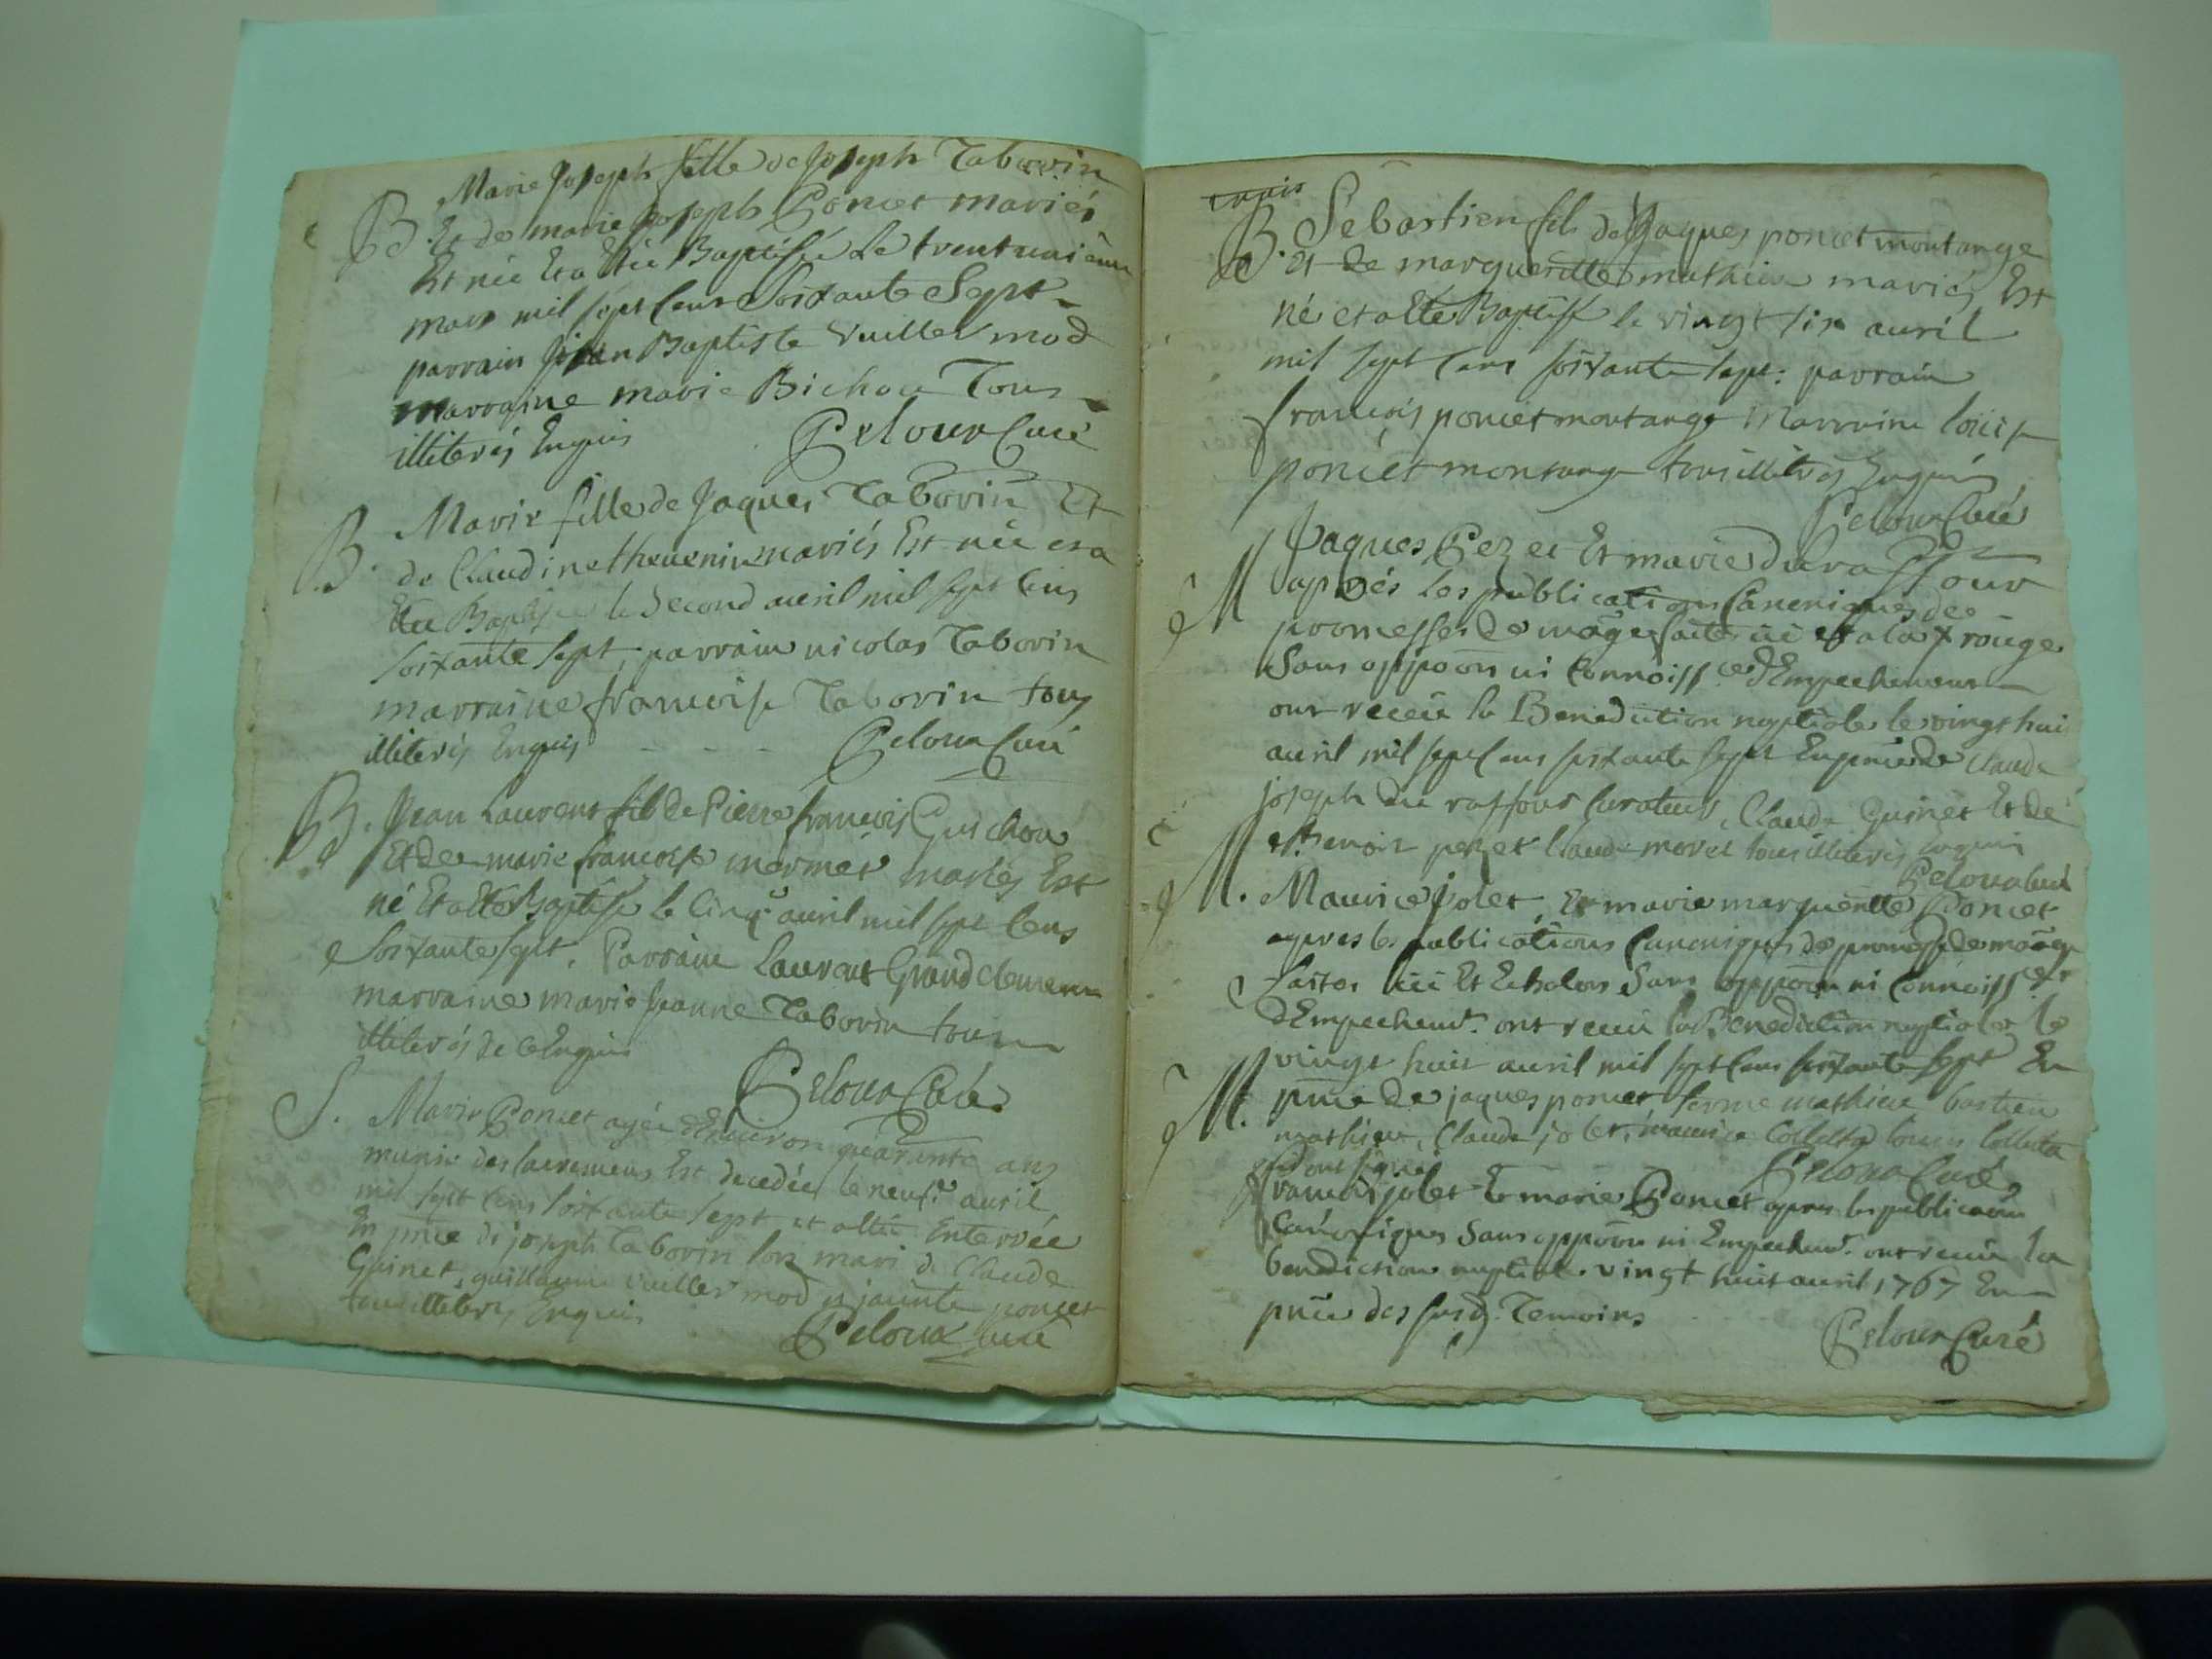 Marie Joseph fille de Joseph Taborin
B. Et de marie Joseph Poncet mariés
Est née Et a Eté Baptisée Le trentunième
mars mil sept Cens Soixante Sept
parrain Jean Baptiste Vuiller mod
marraine marie Bichon Tous
illiterés Enquis Peloux Curé
B. Marie fille de Jaques Taborin Et
de Claudine thevenin mariés Est née et a
Etée Baptisée le Second avril mil sept Cens
Soixante sept, parrain nicolas Taborin
marraine francoise Taborin tous
illiterés Enquis - - - Peloux Curé
B. Jean Laurent fils de Pierre francois Guichon
Et de marie francoise mermet mariés Est
né Et a Eté Baptisé le Cinq avril mil sept Cens
Soixante sept. Parrain Laurent Grandclement
marraine marie Jeanne Taborin tous
illiterés de ce Enquis
Peloux Curé.
S. Marie Poncet agée d'Environ quarante ans
munie des sacremens Est decedée le neufe avril
mil sept Cens soixante sept et a Eté Enterrée
En pnce de joseph Taborin son mari de Claude
Guinet, guillaume Vuiller mod jacinte poncet
tous illiterés Enquis
Peloux Curé
B. Sebastien fils de Jaques poncet montange
Et de margueritte mathieu mariés Est
né et a Eté Baptisé le vingt six avril
mil sept Cens soixante sept: parrain
francois poncet montange Marraine louise
poncet montange tous illiterés Enquis
Peloux Curé
M Jaques Pezet Et marie duraffour
aprés Les publications Canoniques de
promesses de mage faites ici et a la x rouge
Sans oppoon ni Connoissce d'Empechement
ont receu la Benediction nuptiale le vingt huit
avril mil sept Cens soixante sept En pnce de Claude
joseph du raffour Curateur, Claude Guinet Et de
benoit pezet Claude morel tous illiterés Enquis
Peloux Curé
M. Maurice jolet, Et marie marguerite Poncet
apres les publications Canoniques de promesse de mage
faites ici Et Echalon Sans oppoon ni Connoissce
d'Empechemt. ont receu la Benediction nuptiale le
vingt huit avril mil sept Cens soixante sept En
M. pnce de jaques poncet ferme mathieu bastien
mathieu, Claude jolet, maurice Colletta louis Colletta
qui ont signé Peloux Curé
francois jolet Et marie Poncet apres les publicaons
Canoniques Sans oppoon ni Empechemt. ont receu la
benediction nuptiale vingt huit avril 1767 En
pnce des susd. Temoins
Peloux Curé